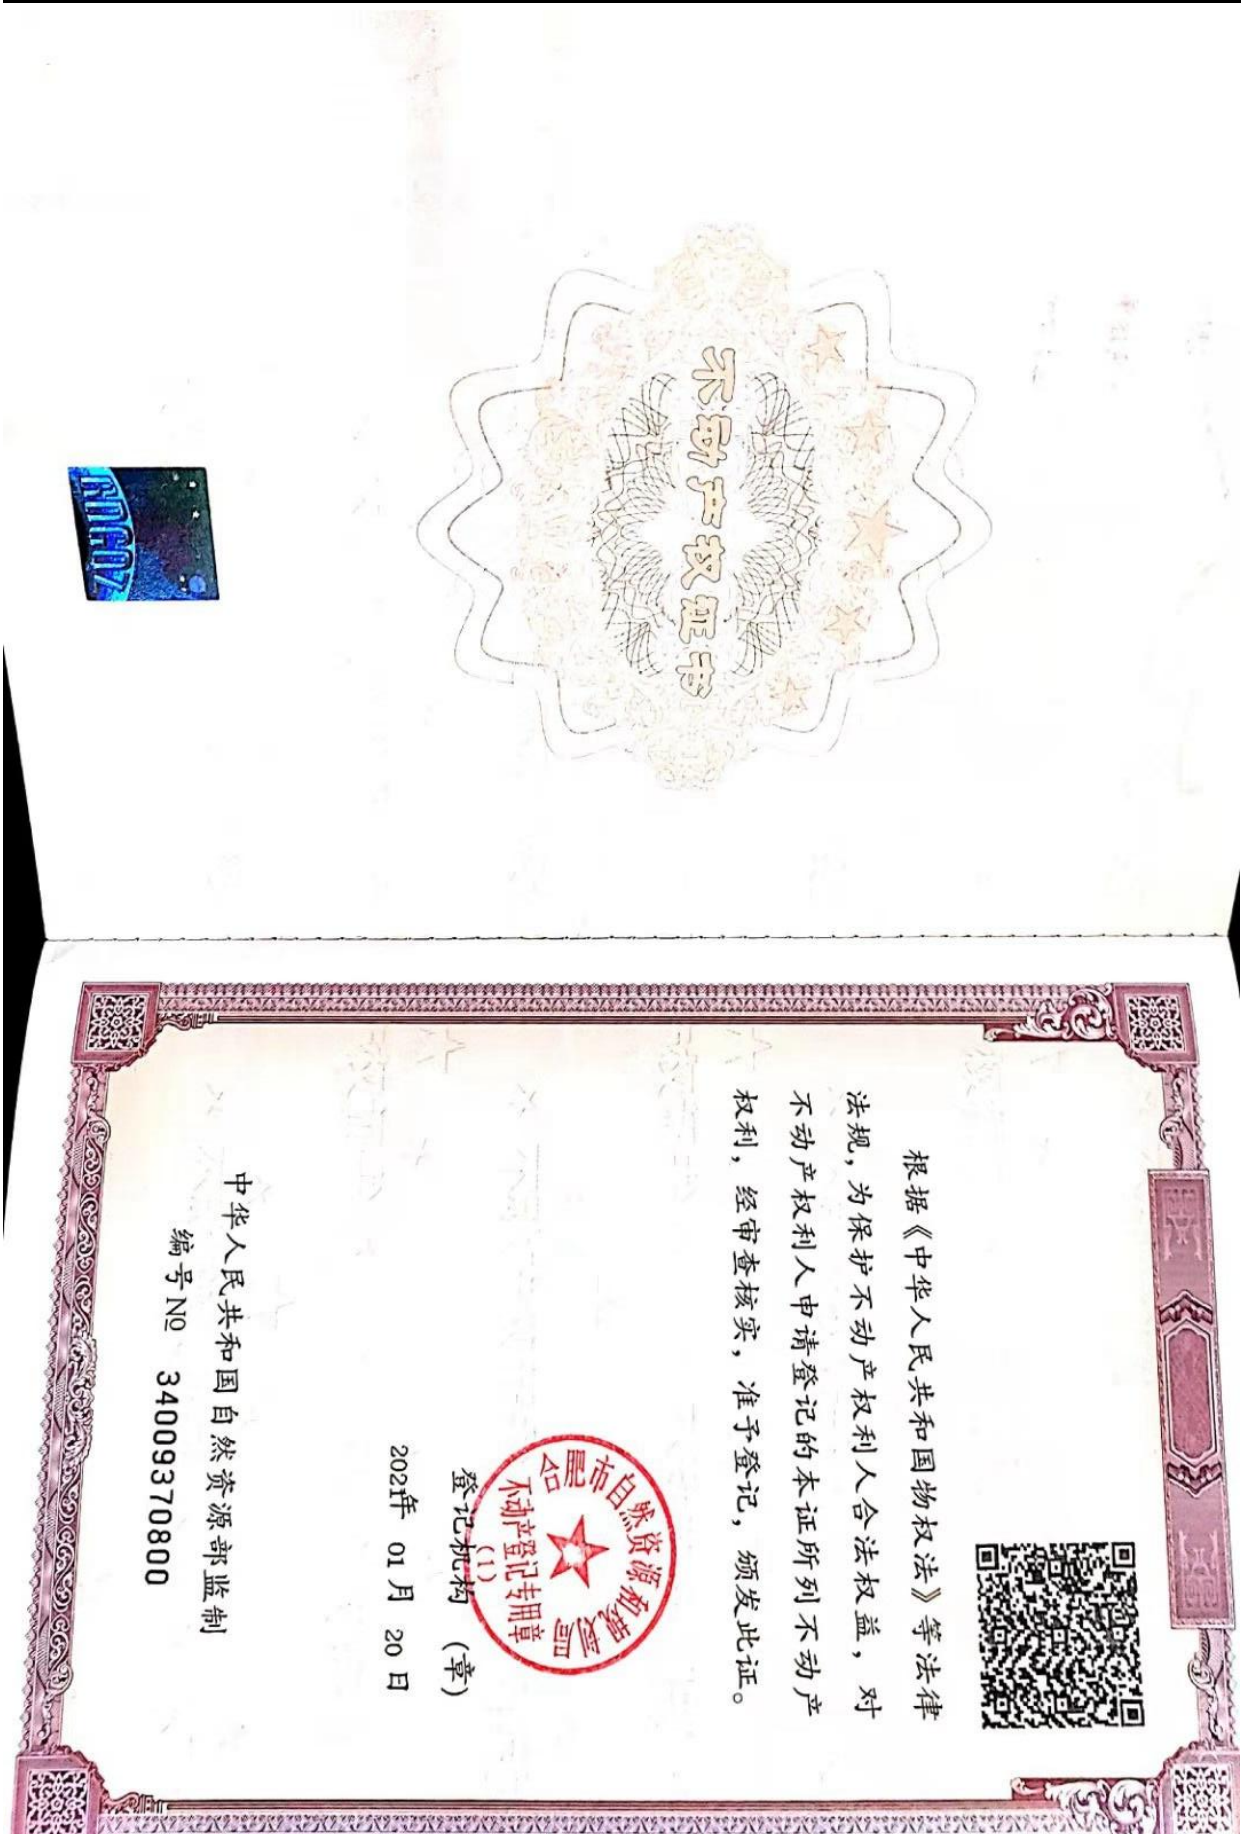 不动产权证书
根据《中华人民共和国物权法》等法律
法规，为保护不动产权利人合法权益，对
不动产权利人申请登记的本证所列不动产
权利，经审查核实，准予登记，颁发此证。
合肥市自然资源和规划局
不动产登记专用章
(1)
登记机构 (章)
2021年 01月 20日
中华人民共和国自然资源部监制
编号№ 34009370800